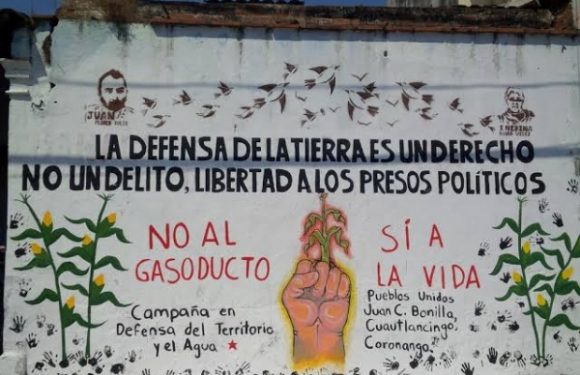 JUAN
LA DEFENSA DE LA TIERRA ES UN DERECHO
NO UN DELITO, LIBERTAD A LOS PRESOS POLÍTICOS
NO AL
GASODUCTO
SÍ A
LA VIDA
Campaña en
Defensa del Territorio
y el Agua
Pueblos Unidos
Juan C. Bonilla,
Cuautlancingo,
Coronango.